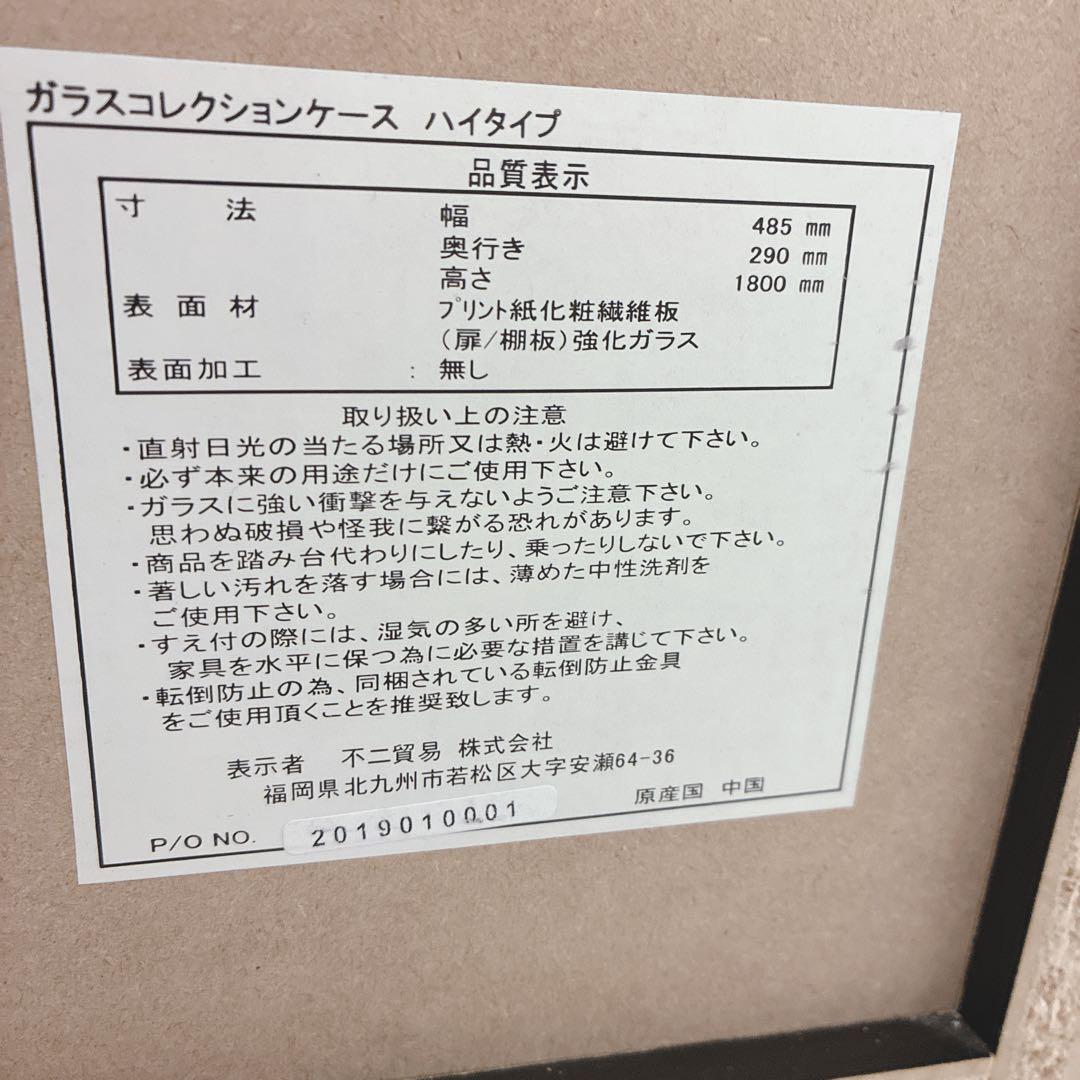 ガラスコレクションケース ハイタイプ
品質表示
寸 法 幅 485 mm
奥行き 290 mm
高さ 1800 mm
表 面 材 プリント紙化粧繊維板
(扉/棚板)強化ガラス
表面加工 : 無し
取り扱い上の注意
・直射日光の当たる場所又は熱・火は避けて下さい。
・必ず本来の用途だけにご使用下さい。
・ガラスに強い衝撃を与えないようご注意下さい。
思わぬ破損や怪我に繋がる恐れがあります。
・商品を踏み台代わりにしたり、乗ったりしないで下さい。
・著しい汚れを落す場合には、薄めた中性洗剤を
ご使用下さい。
・すえ付の際には、湿気の多い所を避け、
家具を水平に保つ為に必要な措置を講じて下さい。
・転倒防止の為、同梱されている転倒防止金具
をご使用頂くことを推奨致します。
表示者 不二貿易 株式会社
福岡県北九州市若松区大字安瀬64-36
原産国 中国
P/O NO. 2019010001